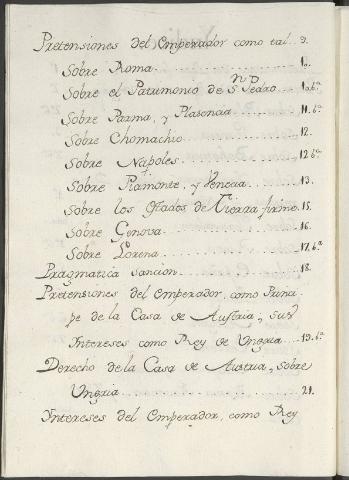 Pretensiones del Emperador como tal 9.
Sobre Roma 10.
Sobre el Patrimonio de Sn. Pedro 10.bta
Sobre Parma, y Plasencia 11.bta
Sobre Chomachio 12.
Sobre Napoles 12 bta
Sobre Piamonte, y Venecia 13.
Sobre los Estados de Tierra firme 15.
Sobre Genova 16.
Sobre Lorena 17.bta
Pragmatica Sancion 18.
Pretensiones del Emperador, como Princi-
pe de la Casa de Austria, sus
Intereses como Rey de Ungria 19.bta
Derecho de la Casa de Austria, sobre
Ungria 21.
Yntereses del Emperador, como Rey